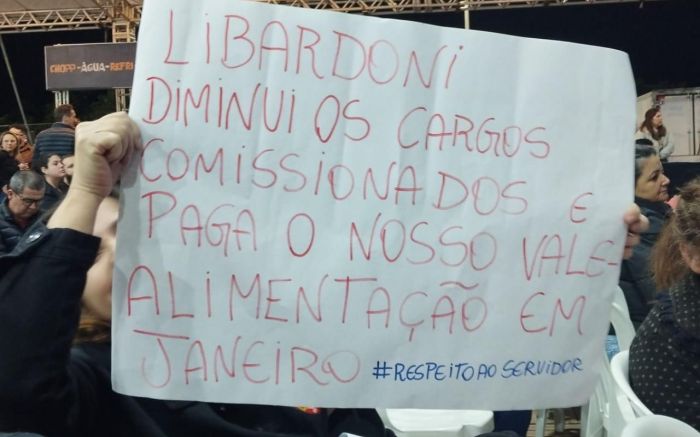 CHOPP-ÁGUA-REFRI
LIBARDONI
DIMINUI OS CARGOS
COMISSIONADOS E
PAGA O NOSSO VALE-
ALIMENTAÇÃO EM
JANEIRO #RESPEITO AO SERVIDOR